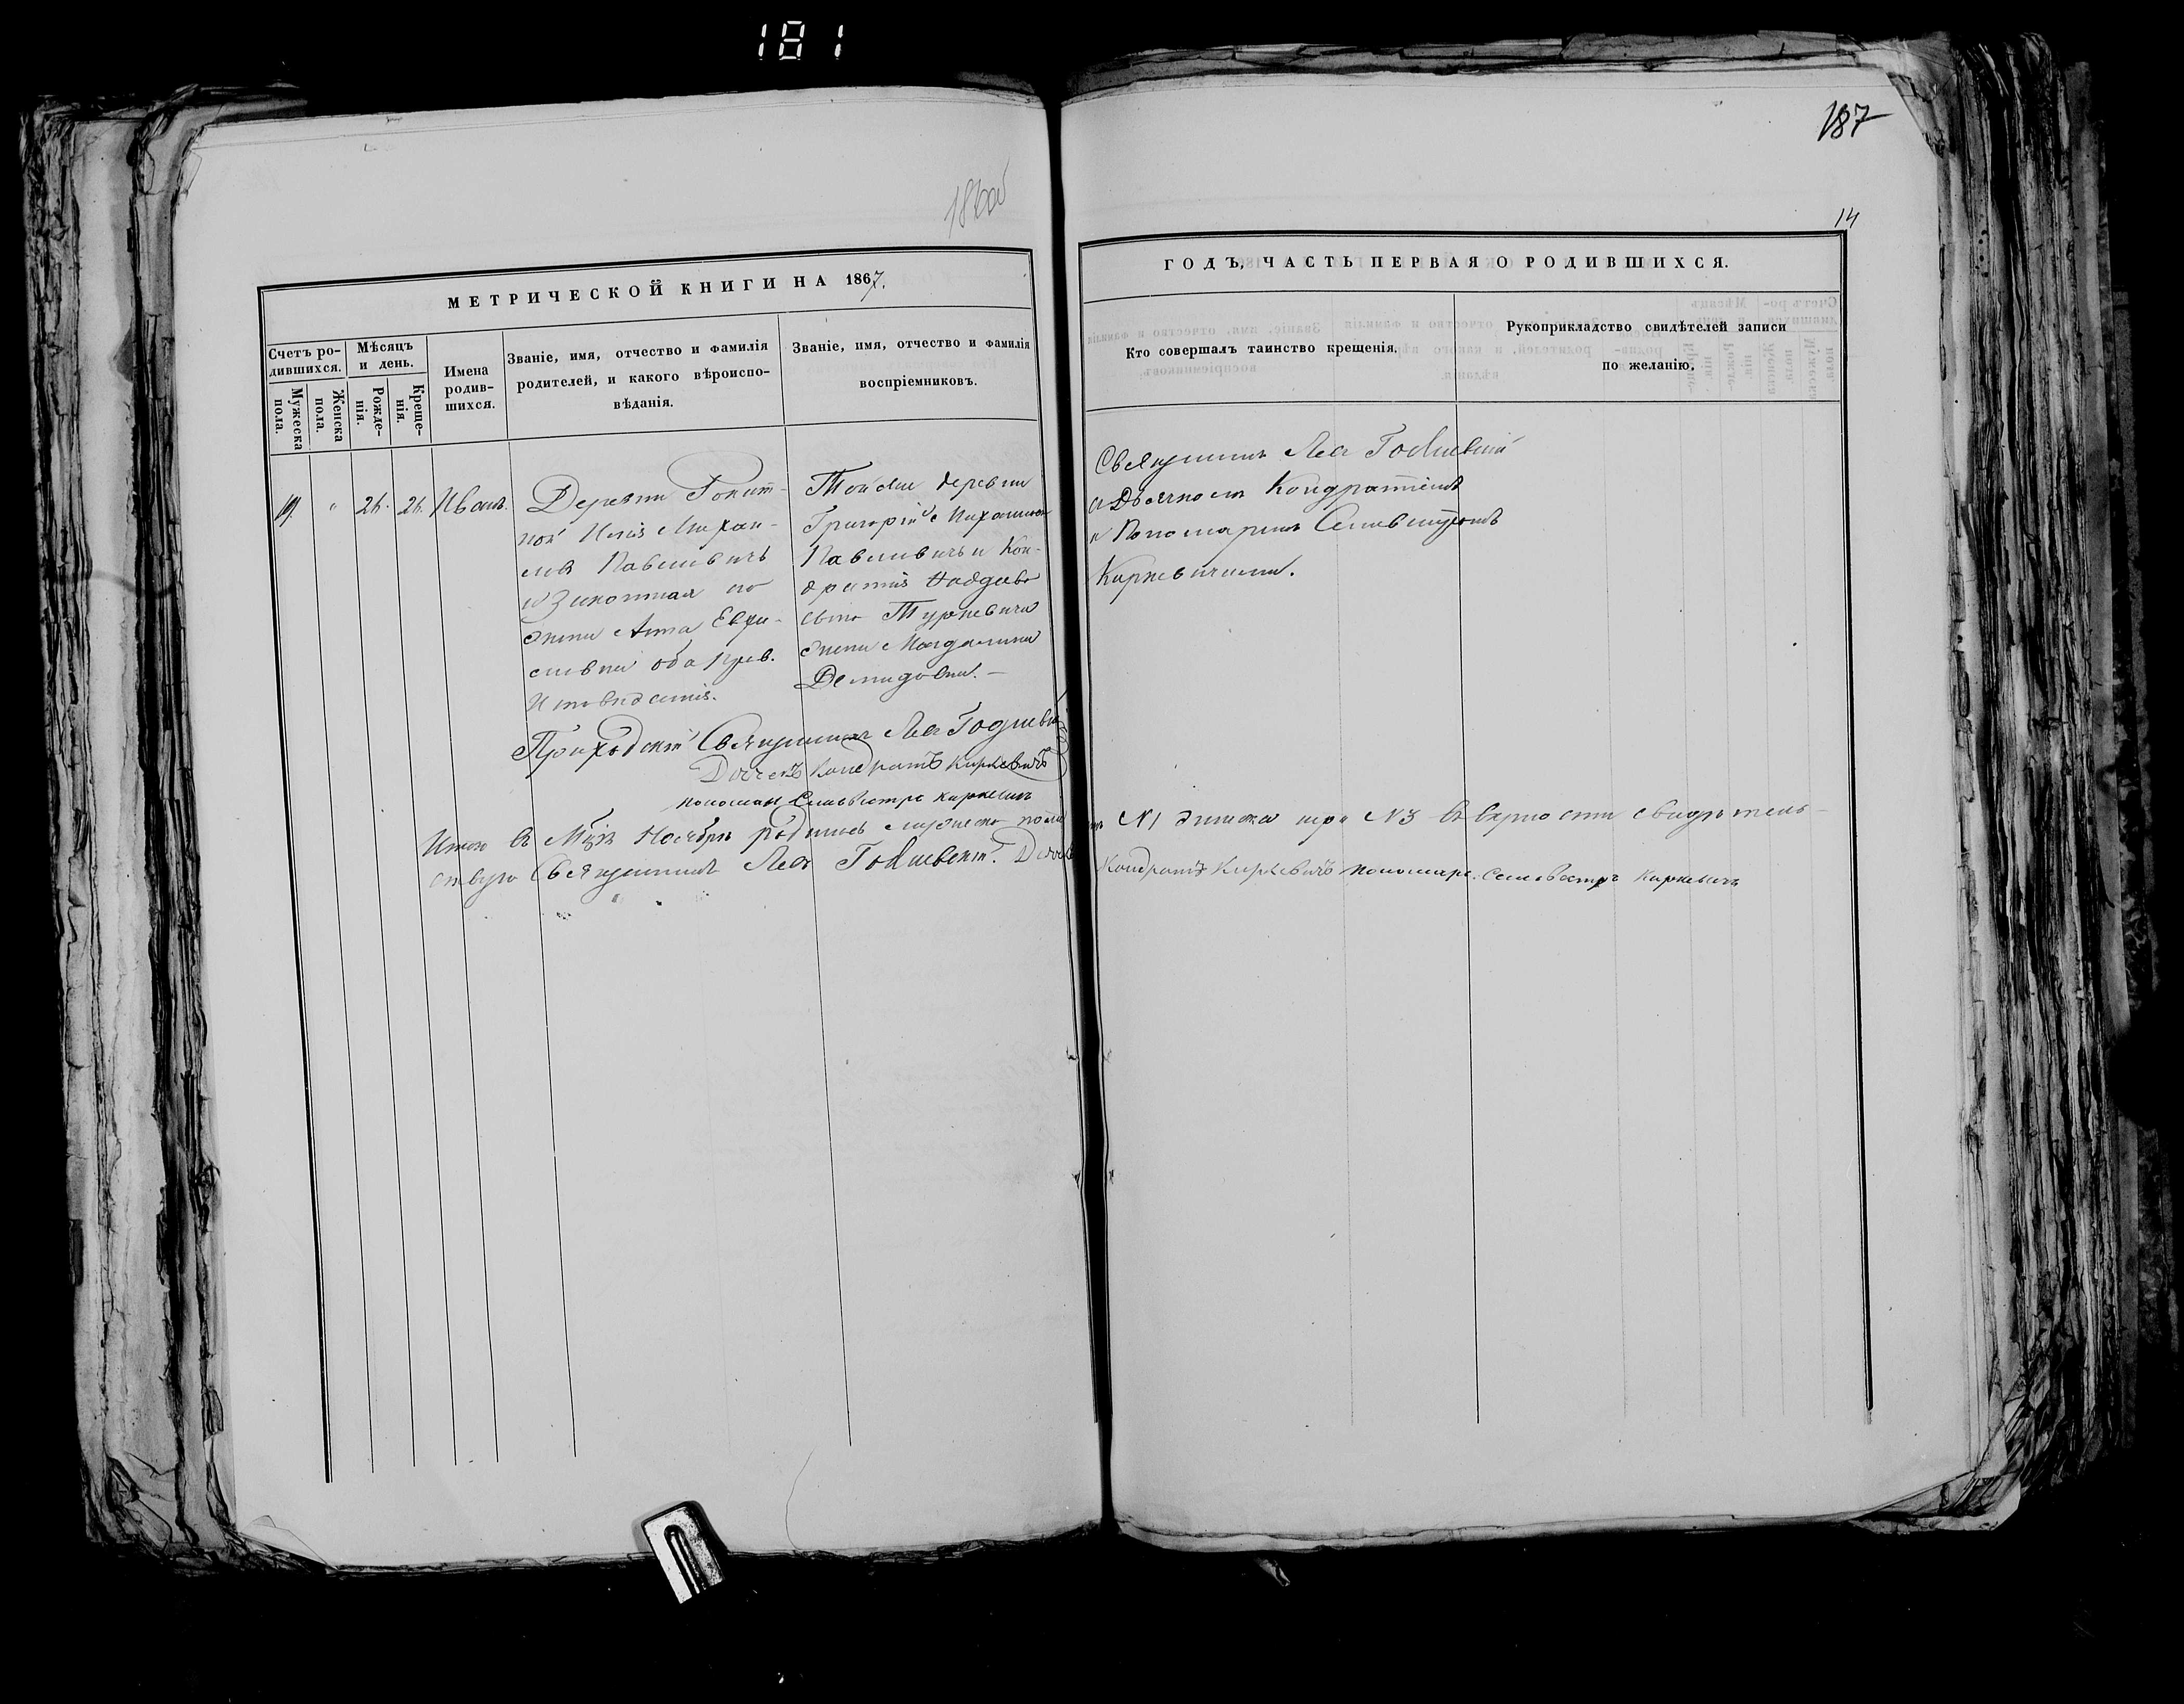 181
187
186об
14
МЕТРИЧЕСКОЙ КНИГИ НА 1867.
ГОДЪ, ЧАСТЬ ПЕРВАЯ О РОДИВШИХСЯ.
Счетъ ро-
дившихся.
Мужеска
пола.
Женска
пола.
Мѣсяцъ
и день.
Рожде-
нія.
Креще-
нія.
Имена
родив-
шихся.
Званіе, имя, отчество и фамилія
родителей, и какого вѣроиспо-
вѣданія.
Званіе, имя, отчество и фамилія
воспріемниковъ.
Кто совершалъ таинство крещенія.
Рукоприкладство свидѣтелей записи
по желанію.
19. " 26. 26. Иванъ.
Деревни Рокит-
ной
Павловичъ
и Законная его
жена Анна
оба прав.
Исповѣданія.
Той же деревни
Григорій
Павловичъ и Кон-
дратія
Туркевича
жена Магдалина
Демидовна. —
Священникъ Левъ
съ Дьячкомъ Кондратіемъ
и Пономаремъ Сильвестромъ
Киркевичами.
Приходскій Священникъ Левъ
Дьячекъ Кондратъ Киркевичъ
пономарь Сильвестръ Киркевичъ
Итого въ Мцѣ Ноябрѣ родилось мужеска пола N1 женска три N3 въ вѣрности свидѣтель-
ствую Священникъ Левъ Дьячекъ Кондратъ Киркевичъ пономарь Сильвестръ Киркевичъ